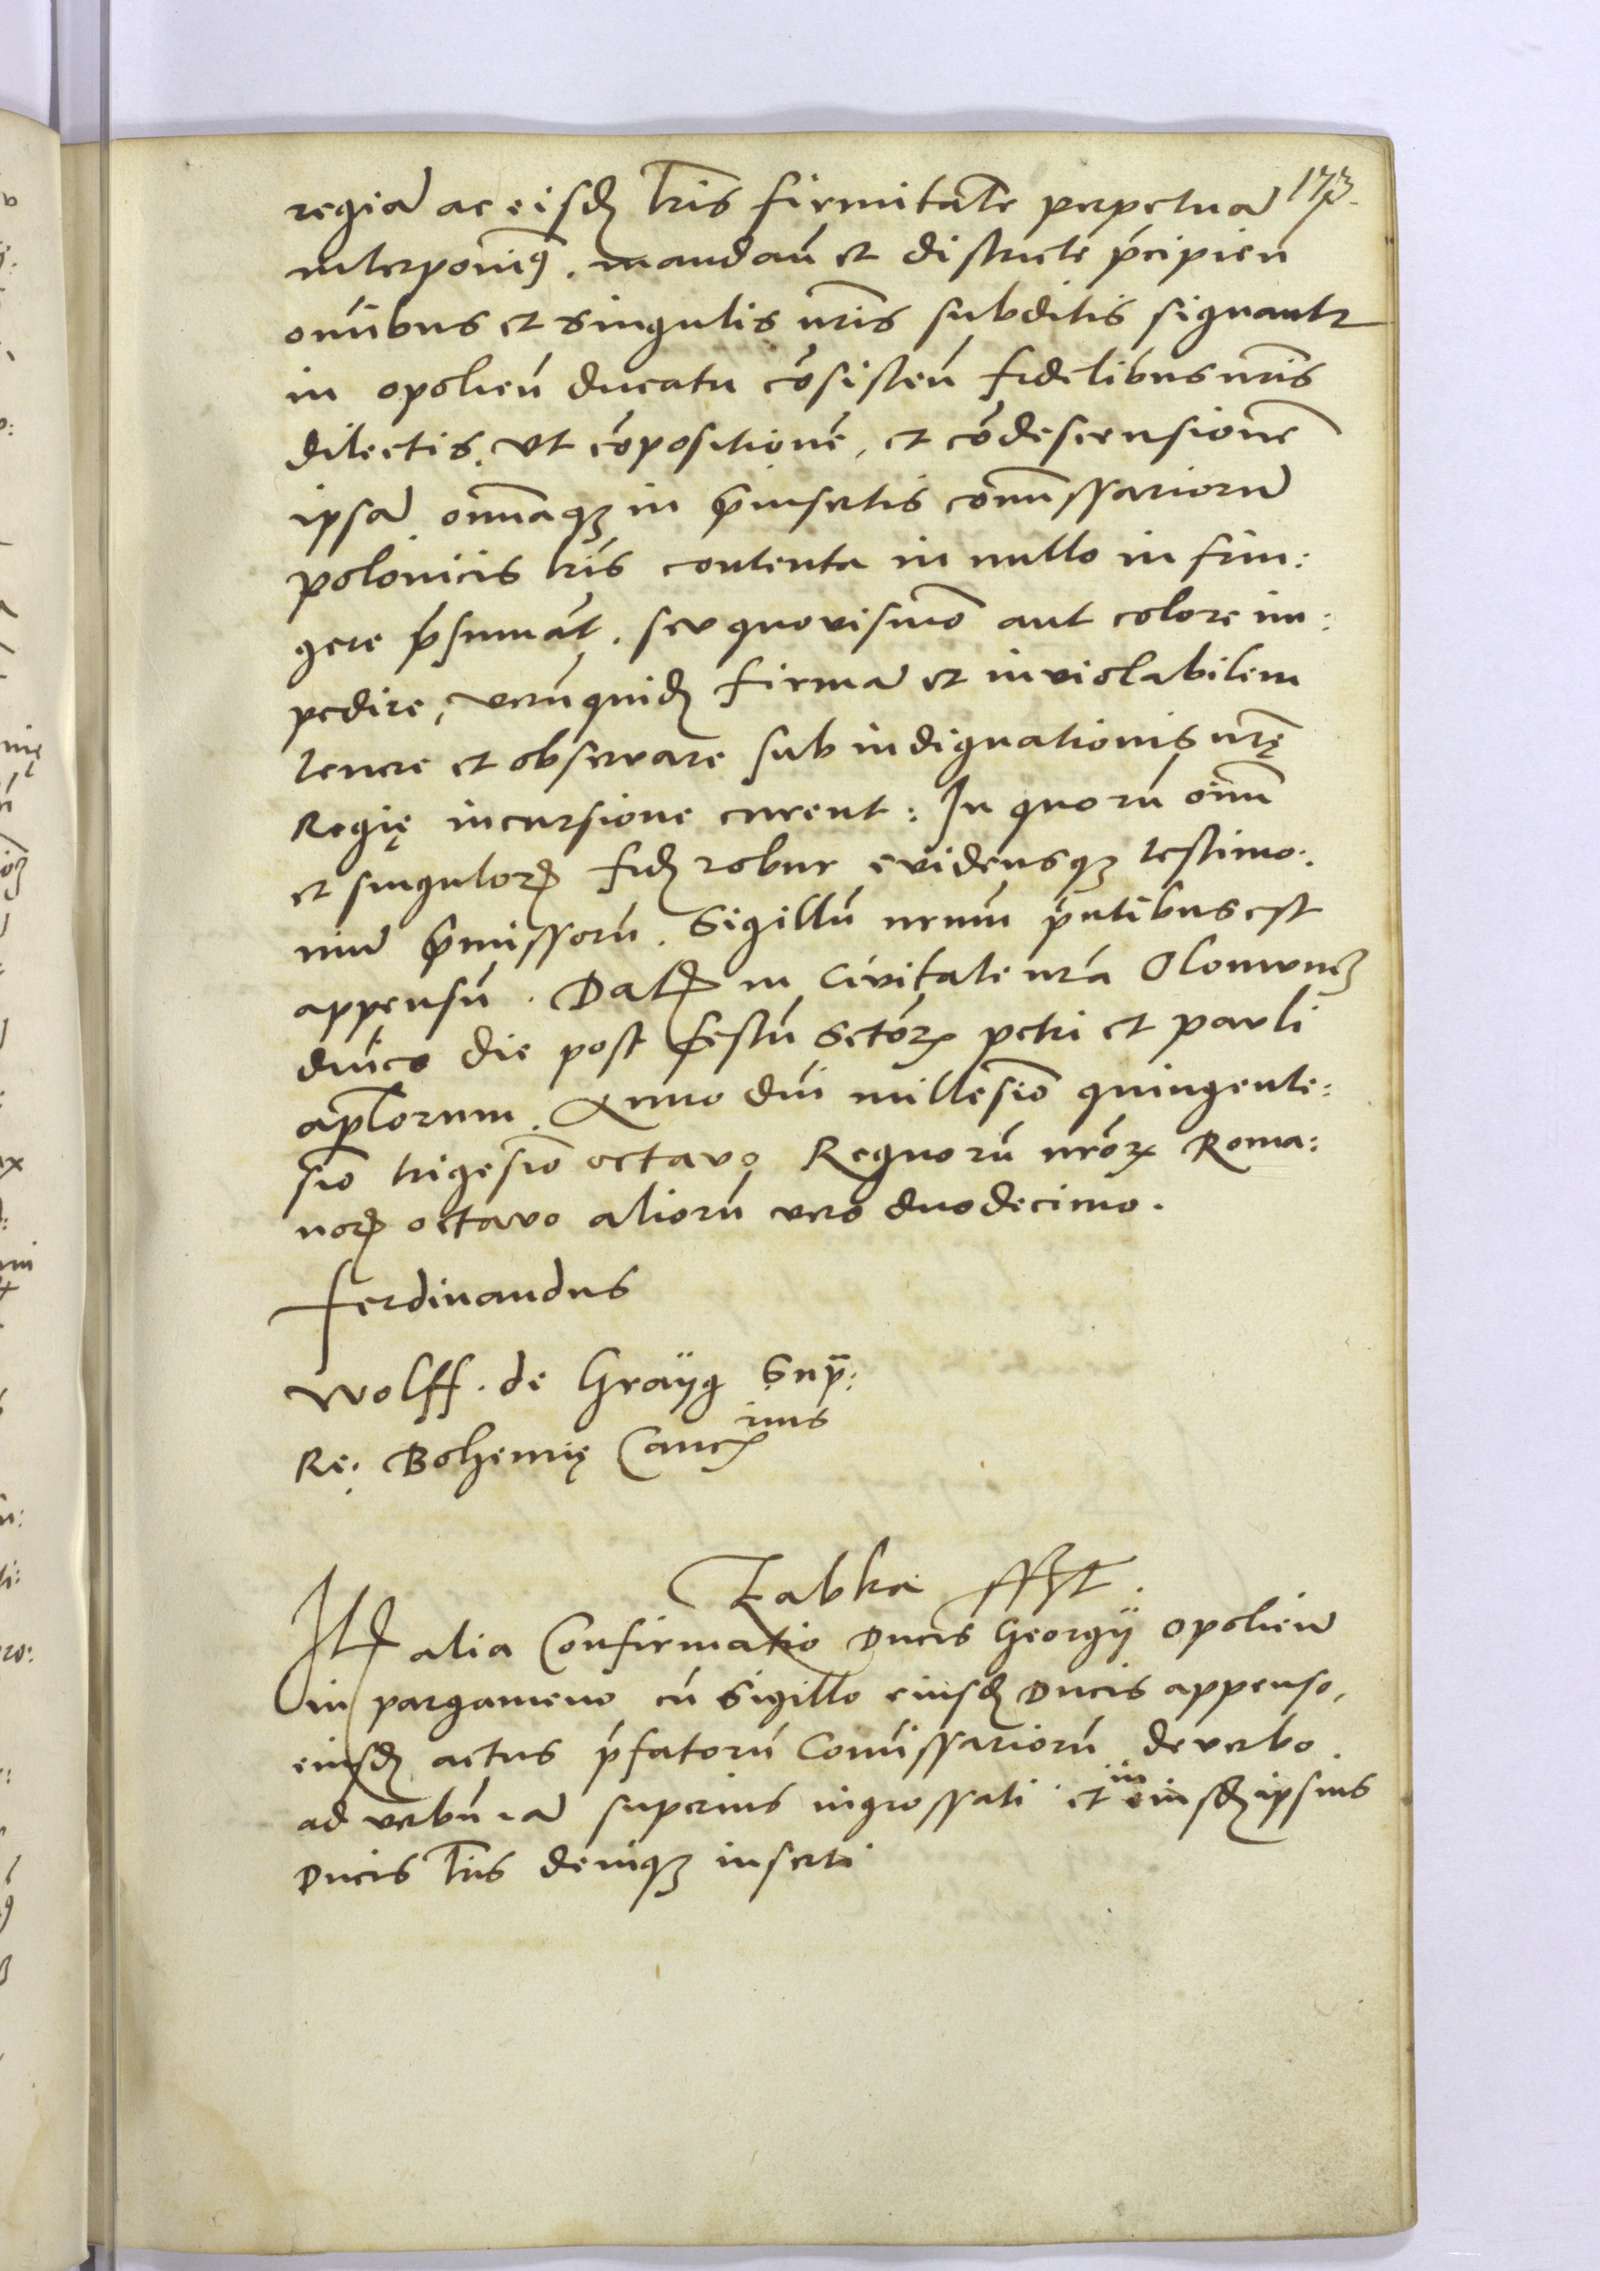 173.
regiā ac eisdē lris firmitatē perpetuā
interponimꝰ. mandan̄ et districte p̄cipien
om̄ibus et singulis nr̄is subditis signantr
in opolien̄ ducatu cōsisten̄ fidelibus nr̄is
dilectis. vt cōpositionē, et cōdescensionē
ipsā om̄iaqꝫ in p̄insertis com̄issariorū
polonicis lr̄is contenta in nullo infrin:
gere p̄sumāt. seu quovismō aut colore im:
pedire, verūquidē firmā et inviolabilem
tenere et observare sub indignationis nr̄ę
Regię incursione curent: In quorū om̄iū
et singulorꝫ fidē robur evidensqꝫ testimo:
niū p̄missorū. Sigillū nr̄um p̄ntibus est
appensū. Datꝫ in Civitate nr̄a Olomuneꝫ
dn̄ico die post festū Sctōrꝫ petri et pauli
apl̄orum. Anno dn̄i millesiō quingente:
siō trigesiō octavo Regnorū nrōrꝫ Roma:
norꝫ octavo aliorū vero duodecimo.
Ferdinandus
Wolff. de Grāyg Sup̄:
Re: Bohemię Cancꝫ ius
Zabka sst.
Itē alia Confirmatio Ducis Georgij Opolien̄
in pargameno cū Sigillo eiusdē Ducis appenso,
eiusdē actus p̄fatorū Com̄issariorū de verbo
ad verbū iā superius ingrossati et in eiusdē ipsius
Ducis lr̄is deniqꝫ inserti